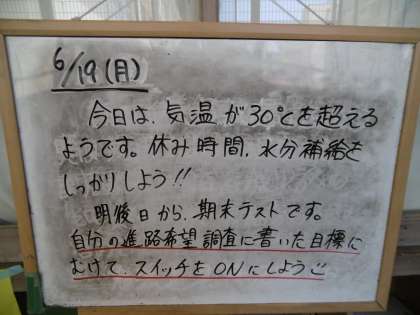 6/19(月)
今日は、気温が30℃を超える
ようです。休み時間、水分補給を
しっかりしよう!!
明後日から、期末テストです。
自分の進路希望調査に書いた目標に
むけて、スイッチをONにしよう